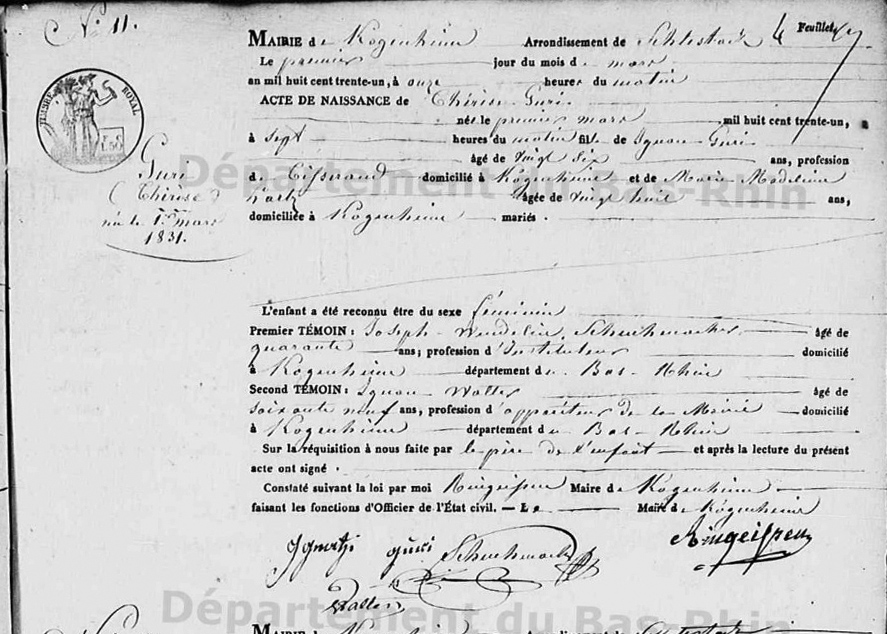 N° 11.
4 Feuillet
MAIRIE de Kogenheim Arrondissement de Schlestadt
Le premier jour du mois de mars
an mil huit cent trente-un, à onze heures du matin
ACTE DE NAISSANCE de Thérèse Guri
née le premier mars mil huit cent trente-un, à
à sept heures du matin fille de Ignace Guri
âgé de vingt six ans, profession
de Tisserand domicilié à Kogenheim et de Marie Madeleine
âgée de vingt huit ans,
domiciliée à Kogenheim mariés.
TIMBRE ROYAL
Guri
Thérèse
née le 1er mars
1831.
L'enfant a été reconnu être du sexe féminin
Premier TÉMOIN : Joseph Wendelin Schuhmacher âgé de
quarante ans; profession d'Instituteur domicilié
à Kogenheim département du Bas-Rhin
Second TÉMOIN : Ignace Walter âgé de
soixante neuf ans, profession d'appariteur de la Mairie domicilié
à Kogenheim département du Bas-Rhin
Sur la réquisition à nous faite par le père de l'enfant et après la lecture du présent
acte ont signé.
Constaté suivant la loi par moi Ringeisen Maire de Kogenheim
faisant les fonctions d'Officier de l'État civil. — Le Maire de Kogenheim
Ignatzi guri Schuhmacher Ringeisen
Walter
Département du Bas-Rhin
Département du Bas-Rhin